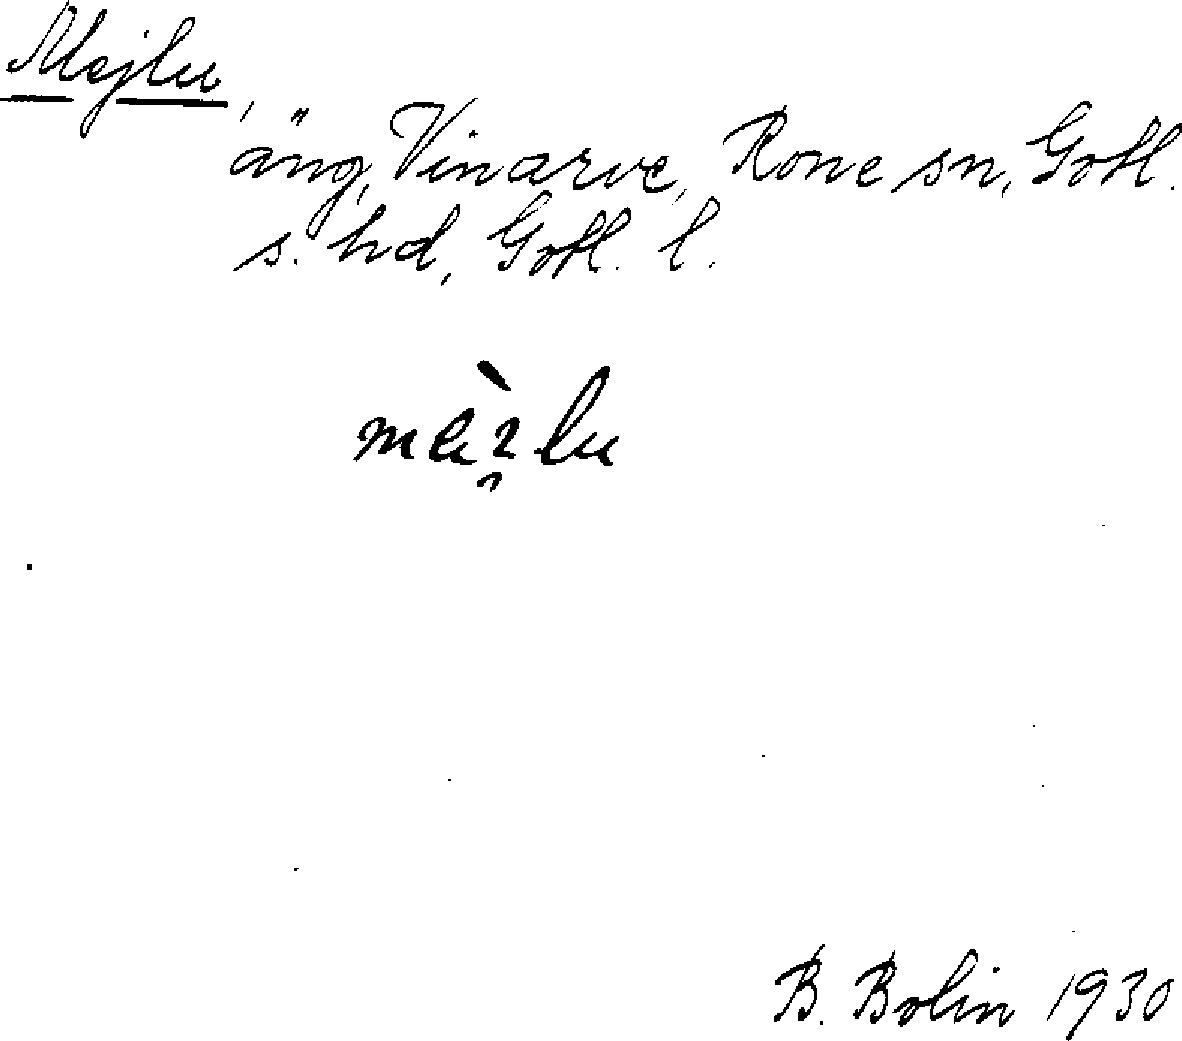 Mejlu,
äng, Vinarve, Rone sn, Gotl.
s. hd, Gotl. l.
B. Bolin 1930